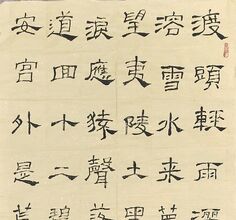 渡頭輕雨灑
溶雪水来夢
望夷陵土黑
淚應猿聲落
道回十二碧
安宮外是荒